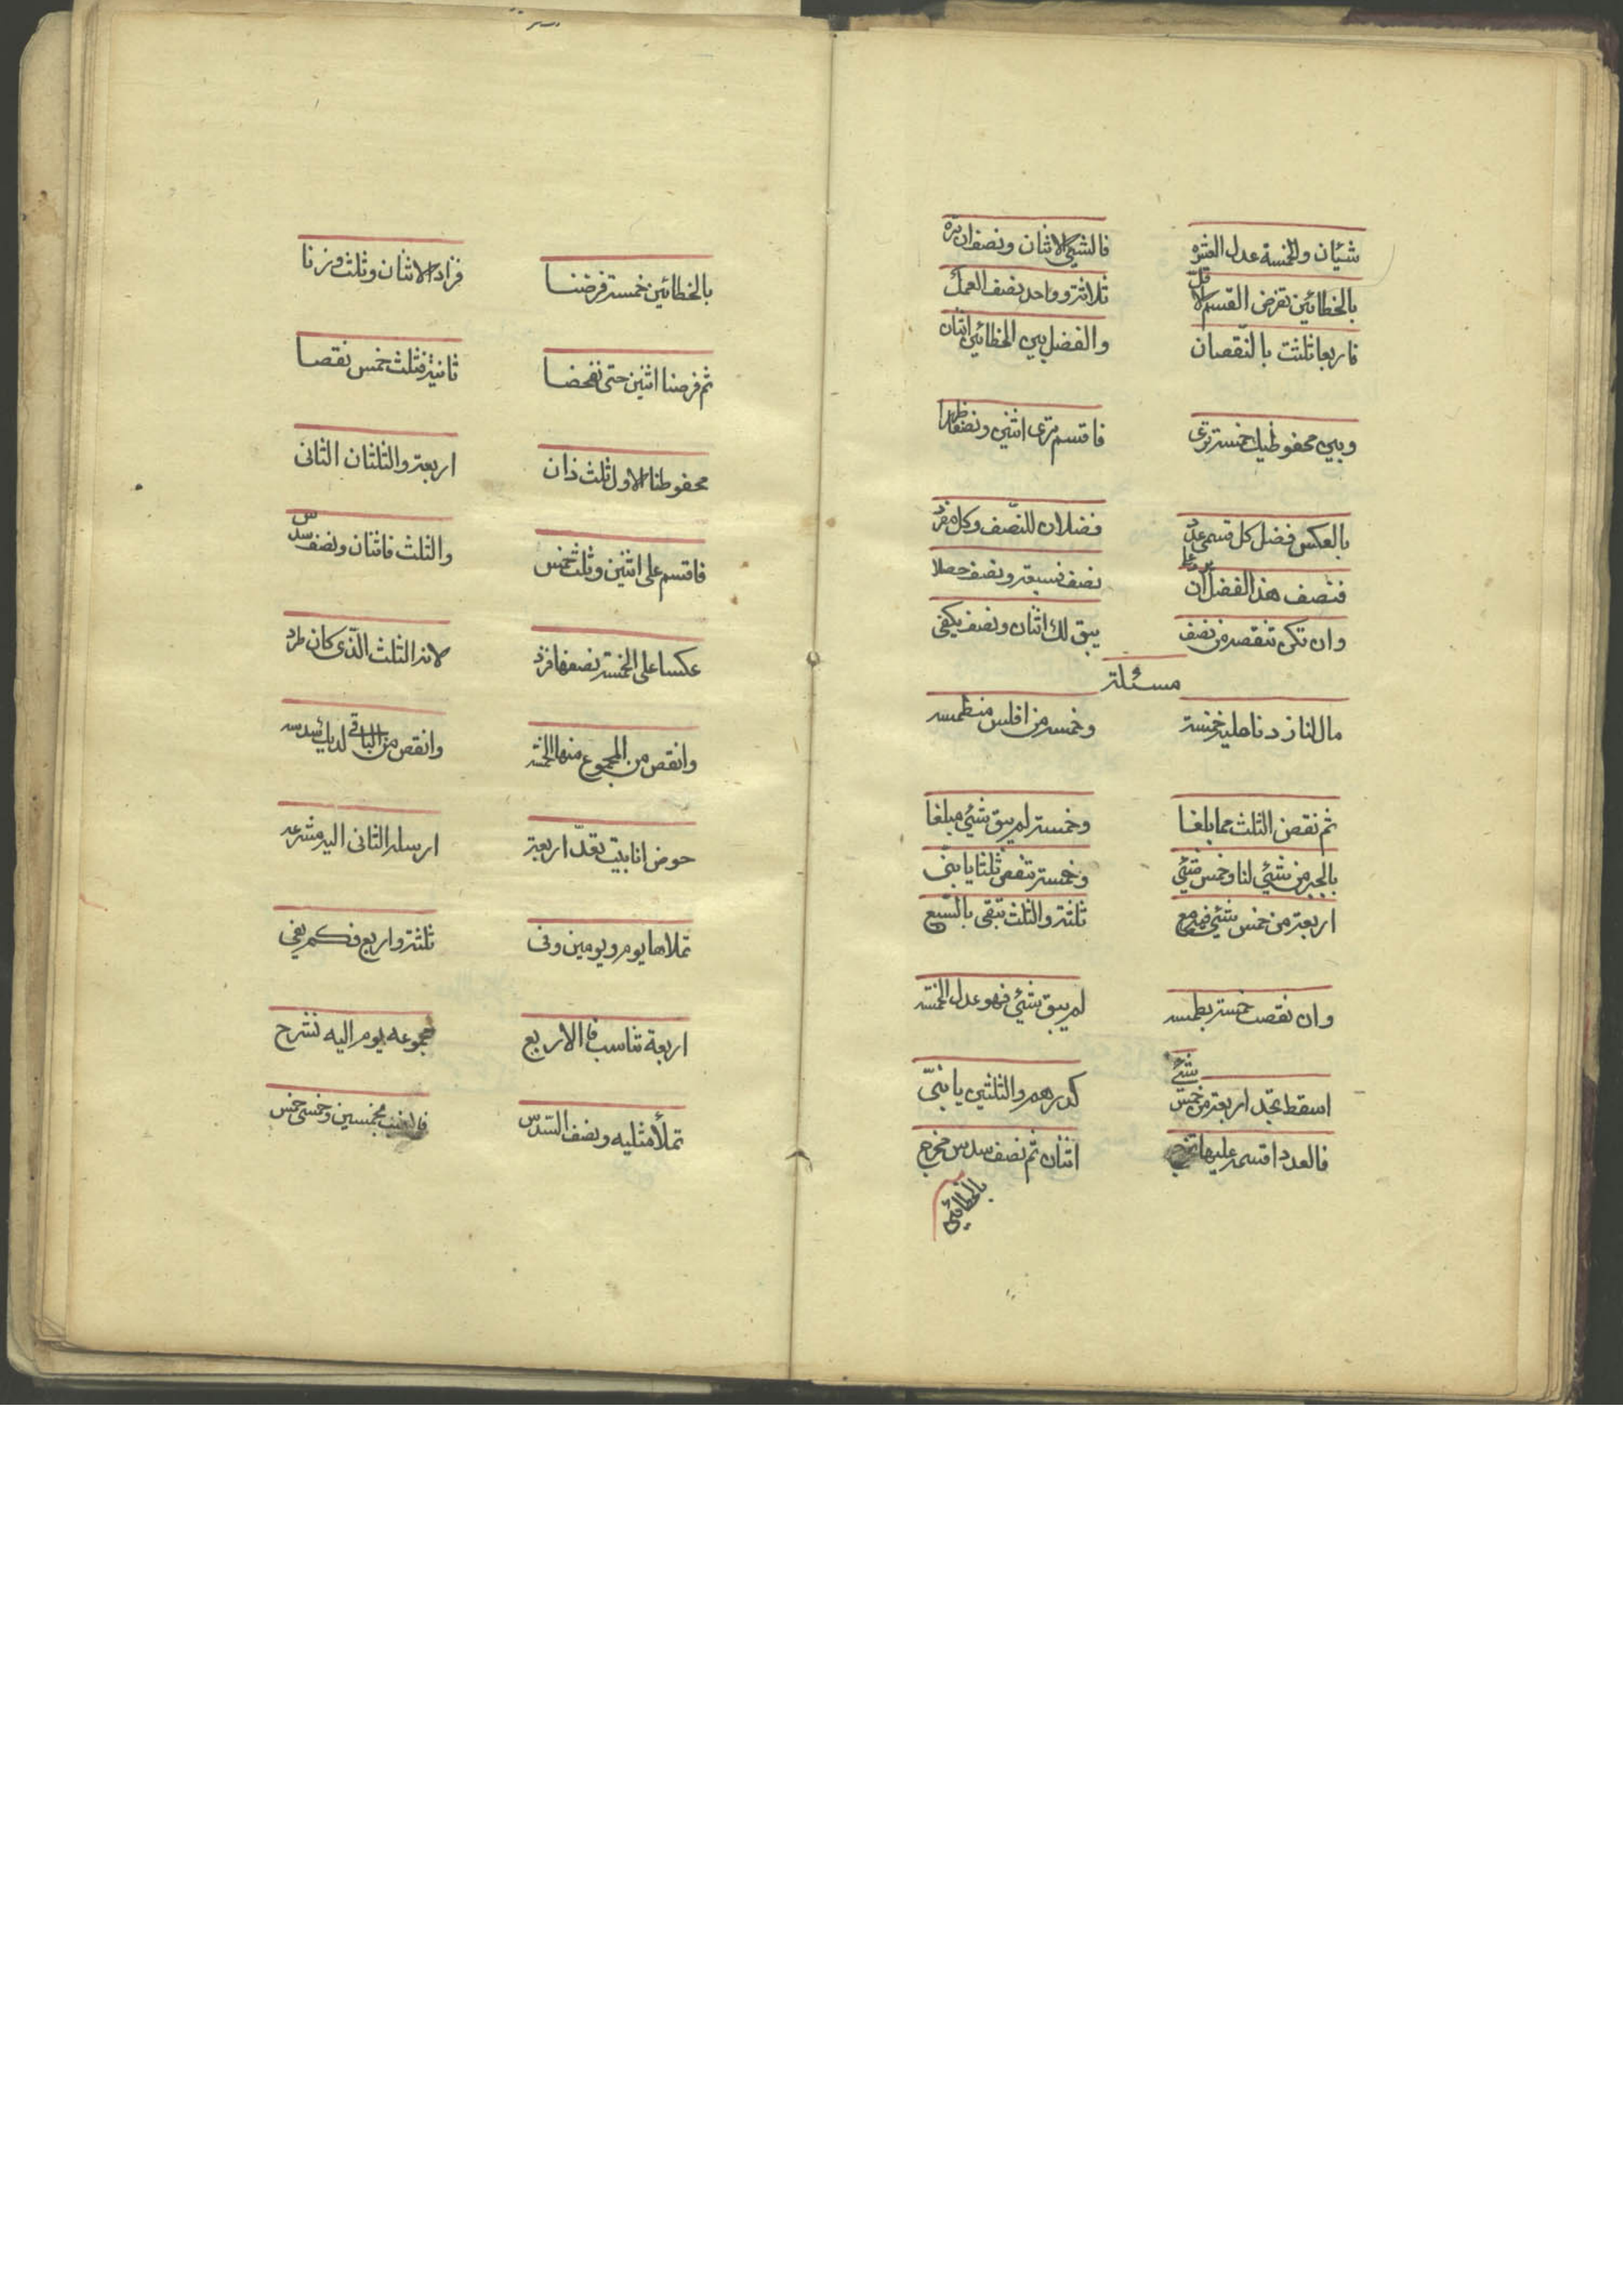 شيئان والخمسة عدل العشره فالشيئ الاثنان ونصف ان تره
بالخطائين نفرض القسم الاقلّ ثلاثة وواحد نصف العمل
فاربعا ثلثت بالنّقصان والفضل بين الخطائين اثنان
وبين محفوظيك خمسة ترى فاقسم ترى اثنين ونصفا ظهرا
بالعكس فضل كل قسمى عدد فضلان للنّصف وكل مفرد
فنصف هذا الفضل ان نصف فسبعة ونصف حصلا
وان تكن تنقصه من نصف يبق لك اثنان ونصف يكفى
مسئلة
مال لنا زدنا عليه خمسة وخمسه من افلس منطمسه
ثم نقص الثلث مما بلغا وخمسة لم يبق شيئ مبلغا
بالجبر من شيئ لنا وخمس شيئ وخمسة تنقص ثلثا يا بنىّ
اربعة من خمس شيئ مع ثلثة والثلث تبقى بالتّبع
وان نقصت خمسة بطمسه لم يبق شيئ فهو عدل الخمسه
اسقط تجد اربعة من خمس شيئ كدرهم والثلثين يا بنىّ
فالعدد اقسمه عليها تخرج اثنان ثم نصف سدس مخرج
بالخطائين
بالخطائين خمسة فرضنا فزاد الاثنان وثلث وزنا
ثم فرضنا اثنين حتى نفحصا ثانية فثلث خمس نقصا
محفوظنا الاول ثلث ذان اربعة والثلثان الثانى
فاقسم على اثنين وثلث خمس والثلث فاثنان ونصف سدس
عكسا على الخمسة نصفها فزد لانه الثلث الّذى كان طرد
وانقص من المجموع منها الخمسه وانقص من الباقى لديك سدسه
حوض انابيب تعدّ اربعة ارسله الثانى اليه مشرعه
تملاها يوم ويومين وفى ثلثة واربع فكم يفى
اربعة تناسب فالاربع مجموعه يوم اليه تشرح
تملأ مثليه ونصف السّدس فانسب بخمسين وخمسى خمس